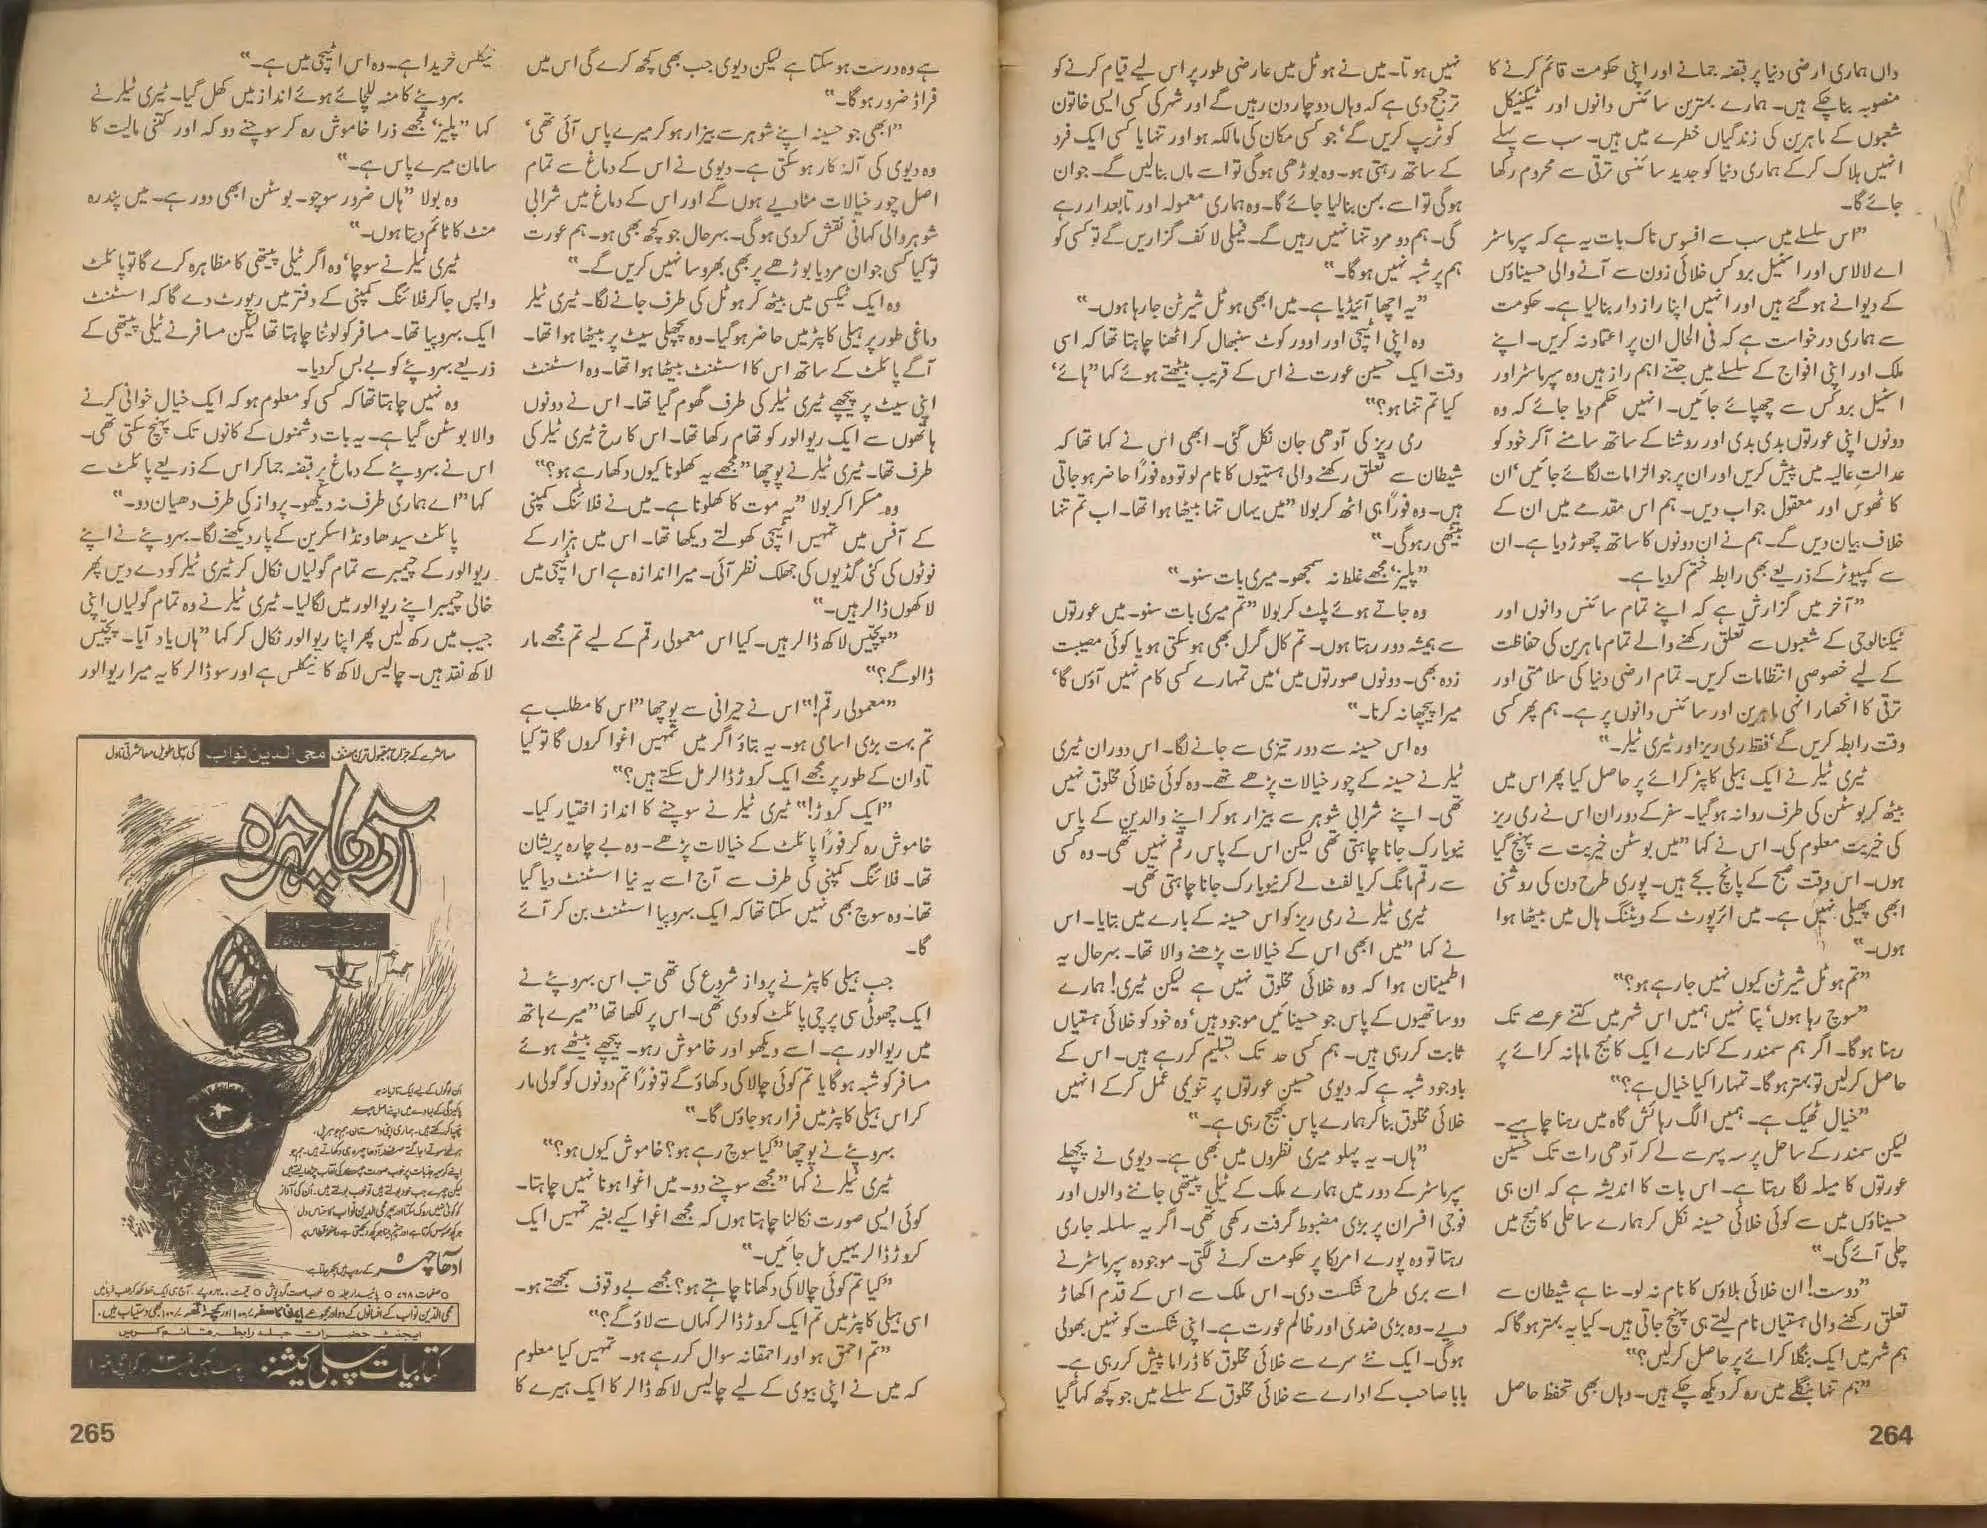 داں ہماری ارضی دنیا پر قبضہ جمانے اور اپنی حکومت قائم کرنے کا
منصوبہ بنا چکے ہیں۔ ہمارے بہترین سائنس دانوں اور ٹیکنیکل
شعبوں کے ماہرین کی زندگیاں خطرے میں ہیں۔ سب سے پہلے
انہیں ہلاک کرکے ہماری دنیا کو جدید سائنسی ترقی سے محروم رکھا
جائے گا۔
”اس سلسلے میں سب سے افسوس ناک بات یہ ہے کہ سپر ماسٹر
اے لالاس اور اسٹیل بروکس خلائی زون سے آنے والی حسیناؤں
کے دیوانے ہوگئے ہیں اور انہیں اپنا راز دار بنا لیا ہے۔ حکومت
سے ہماری درخواست ہے کہ فی الحال ان پر اعتماد نہ کریں۔ اپنے
ملک اور اپنی افواج کے سلسلے میں جتنے اہم راز ہیں وہ سپر ماسٹر اور
اسٹیل بروکس سے چھپائے جائیں۔ انہیں حکم دیا جائے کہ وہ
دونوں اپنی عورتوں بدی بدی اور روشنا کے ساتھ سامنے آکر خود کو
عدالتِ عالیہ میں پیش کریں اور ان پر جو الزامات لگائے جائیں‘ ان
کا ٹھوس اور معقول جواب دیں۔ ہم اس مقدمے میں ان کے
خلاف بیان دیں گے۔ ہم نے ان دونوں کا ساتھ چھوڑ دیا ہے۔ ان
سے کمپیوٹر کے ذریعے بھی رابطہ ختم کردیا ہے۔
”آخر میں گزارش ہے کہ اپنے تمام سائنس دانوں اور
ٹیکنالوجی کے شعبوں سے تعلق رکھنے والے تمام ماہرین کی حفاظت
کے لیے خصوصی انتظامات کریں۔ تمام ارضی دنیا کی سلامتی اور
ترقی کا انحصار انہی ماہرین اور سائنس دانوں پر ہے۔ ہم پھر کسی
وقت رابطہ کریں گے‘ فقط رمی ریز اور ٹیری ٹیلر۔“
ٹیری ٹیلر نے ایک ہیلی کاپٹر کرائے پر حاصل کیا پھر اس میں
بیٹھ کر بوسٹن کی طرف روانہ ہوگیا۔ سفر کے دوران اس نے رمی ریز
کی خیریت معلوم کی۔ اس نے کہا ”میں بوسٹن خیریت سے پہنچ گیا
ہوں۔ اس وقت صبح کے پانچ بجے ہیں۔ پوری طرح دن کی روشنی
ابھی پھیلی نہیں ہے۔ میں ائرپورٹ کے ویٹنگ ہال میں بیٹھا ہوا
ہوں۔“
”تم ہوٹل شیرٹن کیوں نہیں جا رہے ہو؟“
”سوچ رہا ہوں‘ پتا نہیں ہمیں اس شہر میں کتنے عرصے تک
رہنا ہوگا۔ اگر ہم سمندر کے کنارے ایک کاٹیج ماہانہ کرائے پر
حاصل کرلیں تو بہتر ہوگا۔ تمہارا کیا خیال ہے؟“
”خیال ٹھیک ہے۔ ہمیں الگ رہائش گاہ میں رہنا چاہیے۔
لیکن سمندر کے ساحل پر سہ پہر سے لے کر آدھی رات تک حسین
عورتوں کا میلہ لگا رہتا ہے۔ اس بات کا اندیشہ ہے کہ ان ہی
حسیناؤں میں سے کوئی خلائی حسینہ نکل کر ہمارے ساحلی کاٹیج میں
چلی آئے گی۔“
”دوست! ان خلائی بلاؤں کا نام نہ لو۔ سنا ہے شیطان سے
تعلق رکھنے والی ہستیاں نام لیتے ہی پہنچ جاتی ہیں۔ کیا یہ بہتر ہوگا کہ
ہم شہر میں ایک بنگلا کرائے پر حاصل کرلیں؟“
”ہم تنہا بنگلے میں رہ کر دیکھ چکے ہیں۔ وہاں بھی تحفظ حاصل
نہیں ہوتا۔ میں نے ہوٹل میں عارضی طور پر اس لیے قیام کرنے کو
ترجیح دی ہے کہ وہاں دو چار دن رہیں گے اور شہر کی کسی ایسی خاتون
کو ٹریپ کریں گے‘ جو کسی مکان کی مالکہ ہو اور تنہا یا کسی ایک فرد
کے ساتھ رہتی ہو۔ وہ بوڑھی ہوگی تو اسے ماں بنالیں گے۔ جوان
ہوگی تو اسے بہن بنالیا جائے گا۔ وہ ہماری معمولہ اور تابعدار رہے
گی۔ ہم دو مرد تنہا نہیں رہیں گے۔ فیملی لائف گزاریں گے تو کسی کو
ہم پر شبہ نہیں ہوگا۔“
”یہ اچھا آئیڈیا ہے۔ میں ابھی ہوٹل شیرٹن جا رہا ہوں۔“
وہ اپنی اٹیچی اور اوور کوٹ سنبھال کر اٹھنا چاہتا تھا کہ اسی
وقت ایک حسین عورت نے اس کے قریب بیٹھتے ہوئے کہا ”ہائے‘
کیا تم تنہا ہو؟“
رمی ریز کی آدھی جان نکل گئی۔ ابھی اس نے کہا تھا کہ
شیطان سے تعلق رکھنے والی ہستیوں کا نام لو تو وہ فوراً حاضر ہوجاتی
ہیں۔ وہ فوراً ہی اٹھ کر بولا ”میں یہاں تنہا بیٹھا ہوا تھا۔ اب تم تنہا
بیٹھی رہوگی۔“
”پلیز‘ مجھے غلط نہ سمجھو۔ میری بات سنو۔“
وہ جاتے ہوئے پلٹ کر بولا ”تم میری بات سنو۔ میں عورتوں
سے ہمیشہ دور رہتا ہوں۔ تم کال گرل بھی ہوسکتی ہو یا کوئی مصیبت
زدہ بھی۔ دونوں صورتوں میں‘ میں تمہارے کسی کام نہیں آؤں گا‘
میرا پیچھا نہ کرنا۔“
وہ اس حسینہ سے دور تیزی سے جانے لگا۔ اس دوران ٹیری
ٹیلر نے حسینہ کے چور خیالات پڑھے تھے۔ وہ کوئی خلائی مخلوق نہیں
تھی۔ اپنے شرابی شوہر سے بیزار ہوکر اپنے والدین کے پاس
نیویارک جانا چاہتی تھی لیکن اس کے پاس رقم نہیں تھی۔ وہ کسی
سے رقم مانگ کر یا لفٹ لے کر نیویارک جانا چاہتی تھی۔
ٹیری ٹیلر نے رمی ریز کو اس حسینہ کے بارے میں بتایا۔ اس
نے کہا ”میں ابھی اس کے خیالات پڑھنے والا تھا۔ بہرحال یہ
اطمینان ہوا کہ وہ خلائی مخلوق نہیں ہے لیکن ٹیری! ہمارے
دو ساتھیوں کے پاس جو حسینائیں موجود ہیں‘ وہ خود کو خلائی ہستیاں
ثابت کر رہی ہیں۔ ہم کسی حد تک تسلیم کر رہے ہیں۔ اس کے
باوجود شبہ ہے کہ دیوی حسین عورتوں پر تنویمی عمل کرکے انہیں
خلائی مخلوق بنا کر ہمارے پاس بھیج رہی ہے۔“
”ہاں۔ یہ پہلو میری نظروں میں بھی ہے۔ دیوی نے پچھلے
سپر ماسٹر کے دور میں ہمارے ملک کے ٹیلی پیتھی جاننے والوں اور
فوجی افسران پر بڑی مضبوط گرفت رکھی تھی۔ اگر یہ سلسلہ جاری
رہتا تو وہ پورے امریکا پر حکومت کرنے لگتی۔ موجودہ سپر ماسٹر نے
اسے بری طرح شکست دی۔ اس ملک سے اس کے قدم اکھاڑ
دیے۔ وہ بڑی ضدی اور ظالم عورت ہے۔ اپنی شکست کو نہیں بھولی
ہوگی۔ ایک نئے سرے سے خلائی مخلوق کا ڈراما پیش کر رہی ہے۔
بابا صاحب کے ادارے سے خلائی مخلوق کے سلسلے میں جو کچھ کہا گیا
264
ہے وہ درست ہوسکتا ہے لیکن دیوی جب بھی کچھ کرے گی اس میں
فراڈ ضرور ہوگا۔“
”ابھی جو حسینہ اپنے شوہر سے بیزار ہوکر میرے پاس آئی تھی‘
وہ دیوی کی آلہ کار ہوسکتی ہے۔ دیوی نے اس کے دماغ سے تمام
اصل چور خیالات مٹا دیے ہوں گے اور اس کے دماغ میں شرابی
شوہر والی کہانی نقش کردی ہوگی۔ بہرحال جو کچھ بھی ہو۔ ہم عورت
تو کیا کسی جوان مرد یا بوڑھے پر بھی بھروسا نہیں کریں گے۔“
وہ ایک ٹیکسی میں بیٹھ کر ہوٹل کی طرف جانے لگا۔ ٹیری ٹیلر
دماغی طور پر ہیلی کاپٹر میں حاضر ہوگیا۔ وہ پچھلی سیٹ پر بیٹھا ہوا تھا۔
آگے پائلٹ کے ساتھ اس کا اسسٹنٹ بیٹھا ہوا تھا۔ وہ اسسٹنٹ
اپنی سیٹ پر پیچھے ٹیری ٹیلر کی طرف گھوم گیا تھا۔ اس نے دونوں
ہاتھوں سے ایک ریوالور کو تھام رکھا تھا۔ اس کا رخ ٹیری ٹیلر کی
طرف تھا۔ ٹیری ٹیلر نے پوچھا ”مجھے یہ کھلونا کیوں دکھا رہے ہو؟“
وہ مسکرا کر بولا ”یہ موت کا کھلونا ہے۔ میں نے فلائنگ کمپنی
کے آفس میں تمہیں اٹیچی کھولتے دیکھا تھا۔ اس میں ہزار کے
نوٹوں کی کئی گڈیوں کی جھلک نظر آئی۔ میرا اندازہ ہے اس اٹیچی میں
لاکھوں ڈالر ہیں۔“
”پچیس لاکھ ڈالر ہیں۔ کیا اس معمولی رقم کے لیے تم مجھے مار
ڈالوگے؟“
”معمولی رقم!“ اس نے حیرانی سے پوچھا ”اس کا مطلب ہے
تم بہت بڑی اسامی ہو۔ یہ بتاؤ اگر میں تمہیں اغوا کروں گا تو کیا
تاوان کے طور پر مجھے ایک کروڑ ڈالر مل سکتے ہیں؟“
”ایک کروڑ!“ ٹیری ٹیلر نے سوچنے کا انداز اختیار کیا۔
خاموش رہ کر فوراً پائلٹ کے خیالات پڑھے۔ وہ بے چارہ پریشان
تھا۔ فلائنگ کمپنی کی طرف سے آج اسے یہ نیا اسسٹنٹ دیا گیا
تھا۔ وہ سوچ بھی نہیں سکتا تھا کہ ایک بہروپیا اسسٹنٹ بن کر آئے
گا۔
جب ہیلی کاپٹر نے پرواز شروع کی تھی تب اس بہروپئے نے
ایک چھوٹی سی پرچی پائلٹ کو دی تھی۔ اس پر لکھا تھا ”میرے ہاتھ
میں ریوالور ہے۔ اسے دیکھو اور خاموش رہو۔ پیچھے بیٹھے ہوئے
مسافر کو شبہ ہوگا یا تم کوئی چالاکی دکھاؤگے تو فوراً تم دونوں کو گولی مار
کر اس ہیلی کاپٹر میں فرار ہوجاؤں گا۔“
بہروپئے نے پوچھا ”کیا سوچ رہے ہو؟ خاموش کیوں ہو؟“
ٹیری ٹیلر نے کہا ”مجھے سوچنے دو۔ میں اغوا ہونا نہیں چاہتا۔
کوئی ایسی صورت نکالنا چاہتا ہوں کہ مجھے اغوا کیے بغیر تمہیں ایک
کروڑ ڈالر یہیں مل جائیں۔“
”کیا تم کوئی چالاکی دکھانا چاہتے ہو؟ مجھے بے وقوف سمجھتے ہو۔
اسی ہیلی کاپٹر میں تم ایک کروڑ ڈالر کہاں سے لاؤگے؟“
”تم احمق ہو اور احمقانہ سوال کر رہے ہو۔ تمہیں کیا معلوم
کہ میں نے اپنی بیوی کے لیے چالیس لاکھ ڈالر کا ایک ہیرے کا
نیکلس خریدا ہے۔ وہ اس اٹیچی میں ہے۔“
بہروپئے کا منہ للچائے ہوئے انداز میں کھل گیا۔ ٹیری ٹیلر نے
کہا ”پلیز‘ مجھے ذرا خاموش رہ کر سوچنے دو کہ اور کتنی مالیت کا
سامان میرے پاس ہے۔“
وہ بولا ”ہاں ضرور سوچو۔ بوسٹن ابھی دور ہے۔ میں پندرہ
منٹ کا ٹائم دیتا ہوں۔“
ٹیری ٹیلر نے سوچا‘ وہ اگر ٹیلی پیتھی کا مظاہرہ کرے گا تو پائلٹ
واپس جاکر فلائنگ کمپنی کے دفتر میں رپورٹ دے گا کہ اسسٹنٹ
ایک بہروپیا تھا۔ مسافر کو لوٹنا چاہتا تھا لیکن مسافر نے ٹیلی پیتھی کے
ذریعے بہروپئے کو بے بس کردیا۔
وہ نہیں چاہتا تھا کہ کسی کو معلوم ہو کہ ایک خیال خوانی کرنے
والا بوسٹن گیا ہے۔ یہ بات دشمنوں کے کانوں تک پہنچ سکتی تھی۔
اس نے بہروپئے کے دماغ پر قبضہ جما کر اس کے ذریعے پائلٹ سے
کہا ”اے ہماری طرف نہ دیکھو۔ پرواز کی طرف دھیان دو۔“
پائلٹ سیدھا ونڈ اسکرین کے پار دیکھنے لگا۔ بہروپئے نے اپنے
ریوالور کے چیمبر سے تمام گولیاں نکال کر ٹیری ٹیلر کو دے دیں پھر
خالی چیمبر اپنے ریوالور میں لگالیا۔ ٹیری ٹیلر نے وہ تمام گولیاں اپنی
جیب میں رکھ لیں پھر اپنا ریوالور نکال کر کہا ”ہاں یاد آیا۔ پچیس
لاکھ نقد ہیں۔ چالیس لاکھ کا نیکلس ہے اور سو ڈالر کا یہ میرا ریوالور
محی الدین نواب
کی پہلی طویل معاشرتی ناول
آدھا چہرہ
آدھا چہرہ
ایجنٹ حضرات جلد رابطہ قائم کریں
کتابیات پبلی کیشنز
265